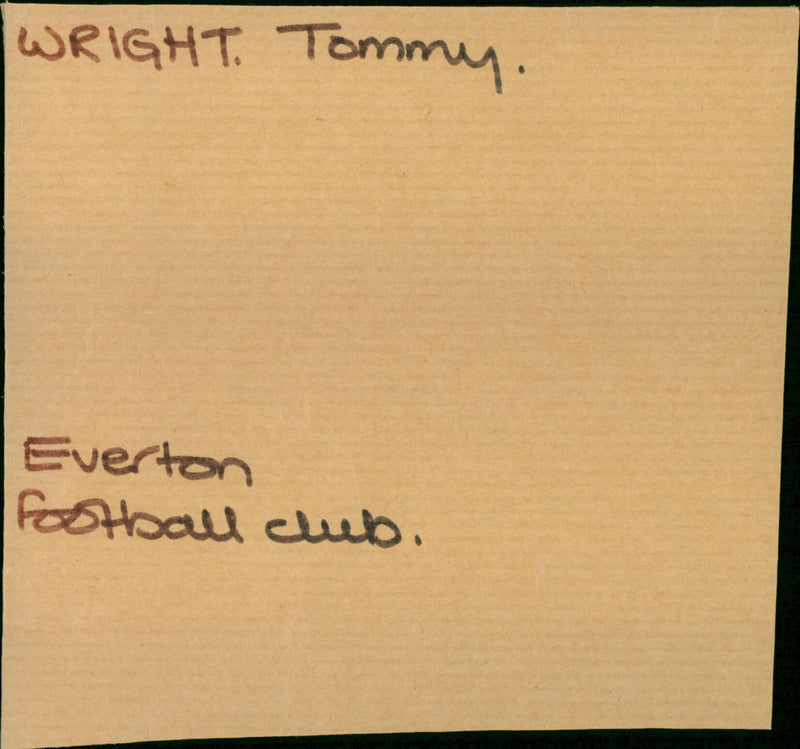 WRIGHT. Tommy.
Everton
football club.